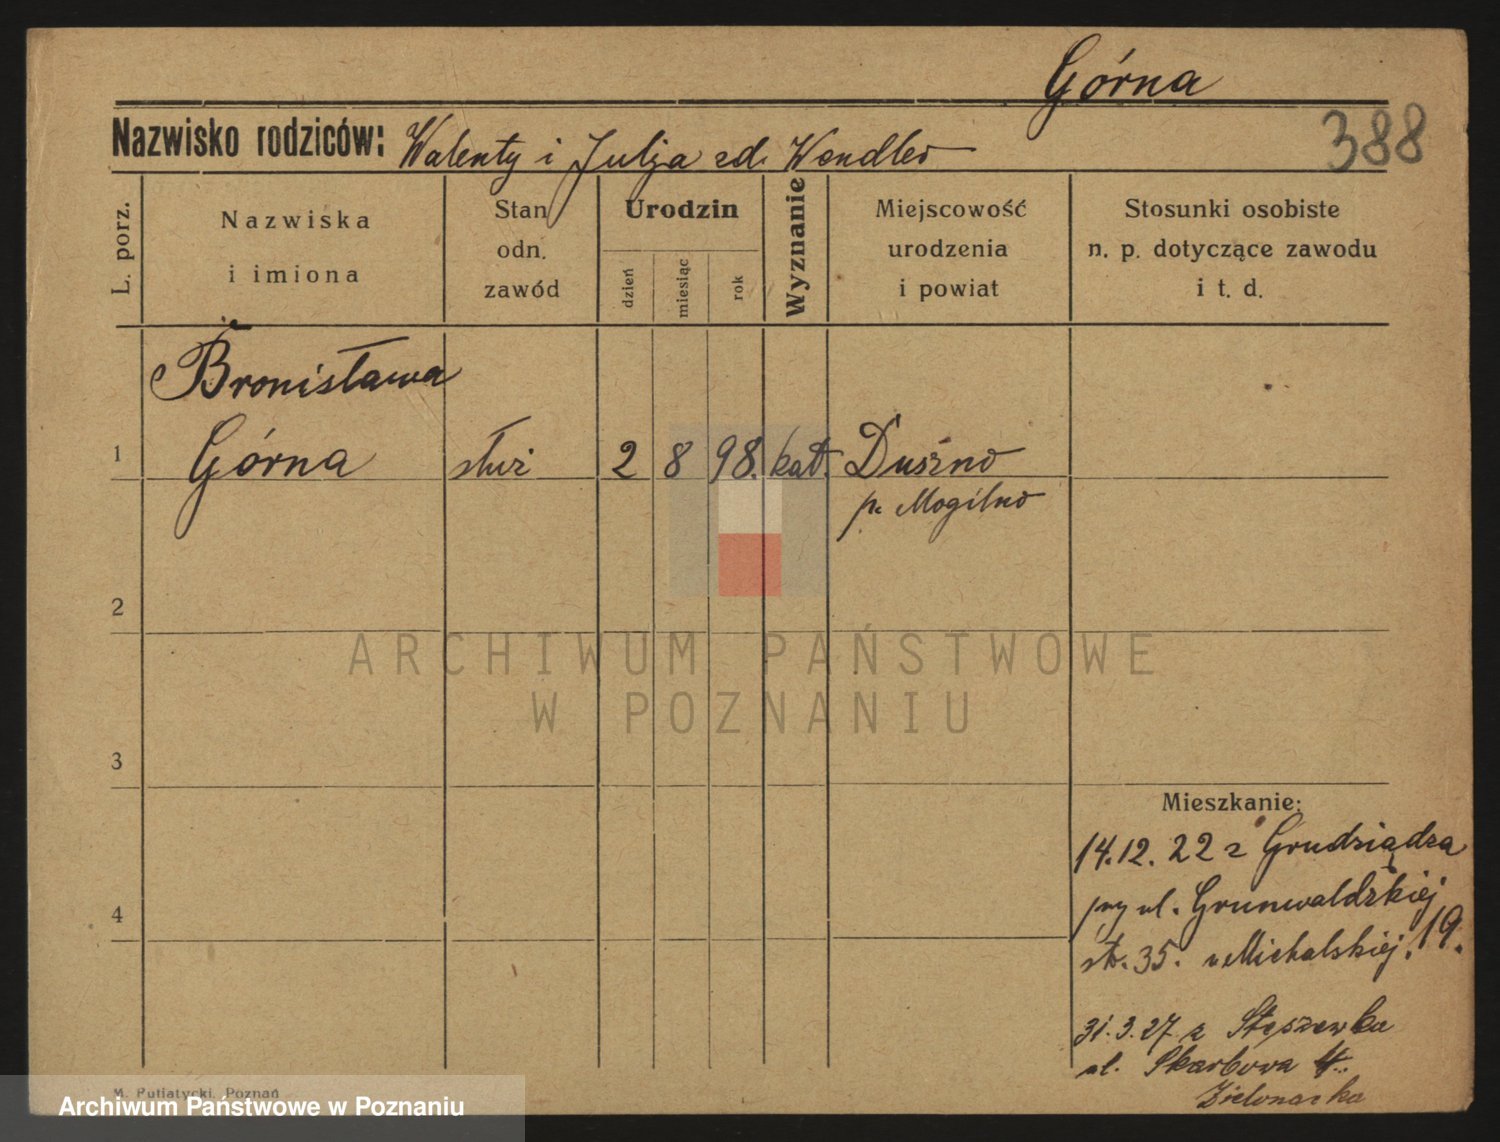 Górna
388
Nazwisko rodziców: Walenty i Julja zd. Wendler
L. porz.
Nazwiska
i imiona
Stan
odn.
zawód
Urodzin
dzień
miesiąc
rok
Wyznanie
Miejscowość
urodzenia
i powiat
Stosunki osobiste
n. p. dotyczące zawodu
i t. d.
Bronisława
1 Górna służ 2 8 98. kat. Duszno
p. Mogilno
2
ARCHIWUM PAŃSTWOWE
W POZNANIU
3
Mieszkanie:
14.12.22 z Grudziądza
przy ul. Grunwaldzkiej 19.
st. 35. u Michalskiej.
4
31.3.27 z Stęszewka
ul. Skarbowa 4.
M. Putiatycki, Poznań
Archiwum Państwowe w Poznaniu